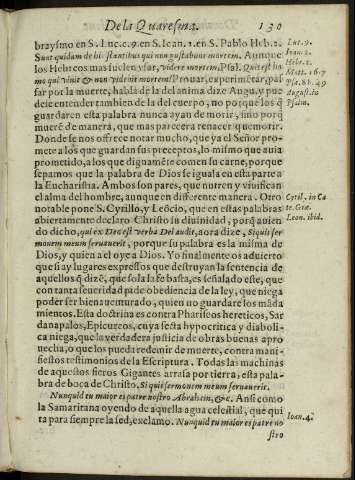 De la Quaresma. 130
braysmo en S. Luc. c. 9. en S. Ioan. 2. en S. Pablo Heb. 2.
Sunt quidam de hic stantibus qui non gustabunt mortem. Aunque
los Hebreos mas suelen vsar, videre mortem; Psal. Quis est ho
mo qui viuit & non videbit mortem? Prouar, experimētar, paſ
sar por la muerte, habla de la del anima dize Augu. y pue
de entender tambien de la del cuerpo, no porque los q̄
guardaren esta palabra nunca ayan de morir, sino porq̄
muerē de manera, que mas parece ra renacer que morir.
Donde se nos ofrece notar mucho, que ya el Señor pro-
mete a los que guardan sus preceptos, lo mismo que auia
prometido, a los que dignamēte comen su carne, porque
sepamos que la palabra de Dios se iguala en esta parte a
la Eucharistia. Ambos son pares, que nutren y viuifican
el alma del hombre, aunque en diferente manera. Otro
notable pone S. Cyrillo, y Leōcio, que en estas palabras
abiertamente declaro Christo su diuinidad, porq̄ auien
do dicho, qui ex Deo est verba Dei audit, aora dize, Si quis ser
monem meum seruauerit, porque su palabra es la misma de
Dios, y quien a el oye a Dios. Yo finalmente os aduierto
que si ay lugares expressos que destruyan la sentencia de
aquellos q̄ dizē, que sola la fe basta, es señalado este, que
con tanta seueridad pide obediencia de la ley, que niega
poder ser bienauenturado, quien no guardare los māda
mientos. Esta doctrina es contra Phariseos hereticos, Sar
danapalos, Epicureos, cuya secta hypocritica y diaboli-
ca niega, que la verdadera justicia de obras buenas apro
uecha, o que los pueda redemir de muerte, contra mani-
fiestos testimonios de la Escriptura. Todas las machinas
de aquestos fieros Gigantes arrasa por tierra, esta pala-
bra de boca de Christo. Si quis sermonem meum seruauerit.
Nunquid tu maior es patre nostro Abraham, &c. Ansi como
la Samaritana oyendo de aquella agua celestial, que qui
ta para siempre la sed, exclamo. Nunquid tu maior es patre no
stro
Luc. 9.
Ioan. 2.
Heb. 2.
Matt. 16. 7
Psa. 88. 49
August. in
Psalm.
Cyril. in Ca
te. Græ.
Leon. ibid.
Ioan. 4.